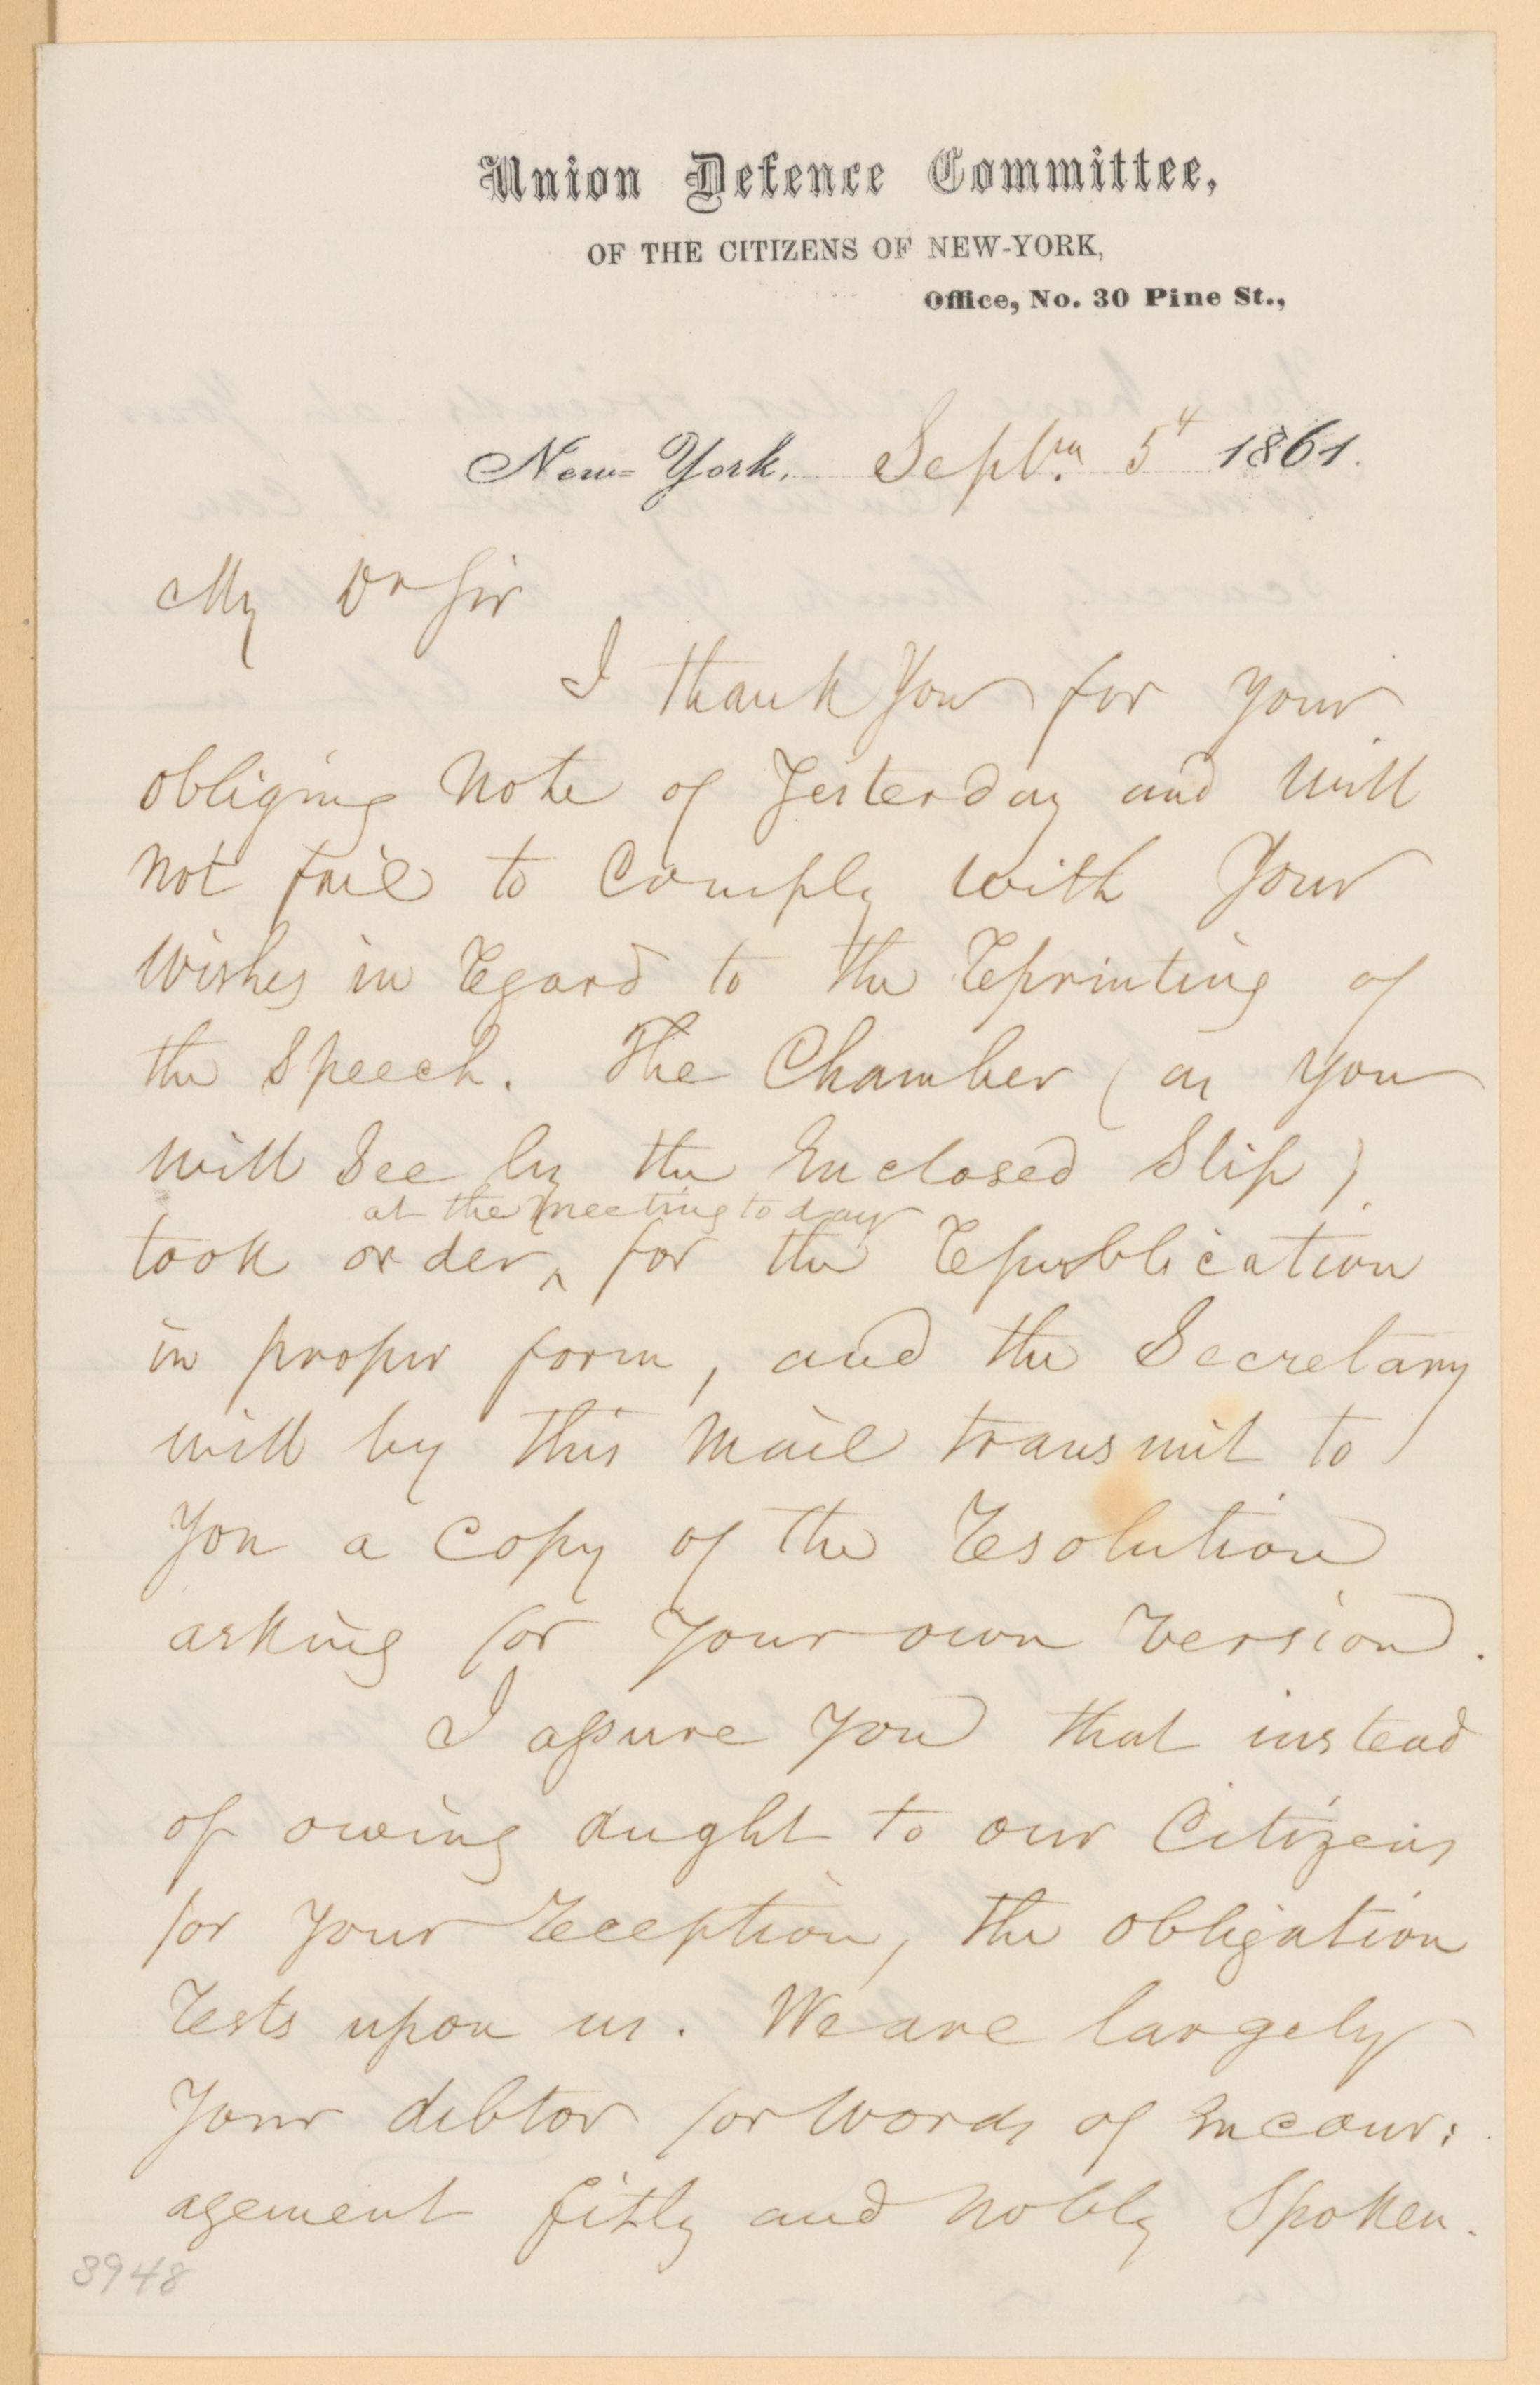 Union Defence Committee,
OF THE CITIZENS OF NEW-YORK,
Office, No. 30 Pine St.,
New-York, Septbr. 5th 1861.
My Dr Sir
I thank You for your
obliging Note of Yesterday and will
not fail to Comply with Your
wishes in regard to the reprinting of
the Speech. The Chamber (as you
will See by the Enclosed Slip)
at the meeting to day
took order ^ for the republication
in proper form, and the Secretary
will by this Mail transmit to
You a Copy of the resolution
asking for Your own version.
I assure You that instead
of owing aught to our Citizens
for Your reception, the obligation
rests upon us. We are largely
Your debtor for Words of Encour:
agement fitly and Nobly Spoken.
3948